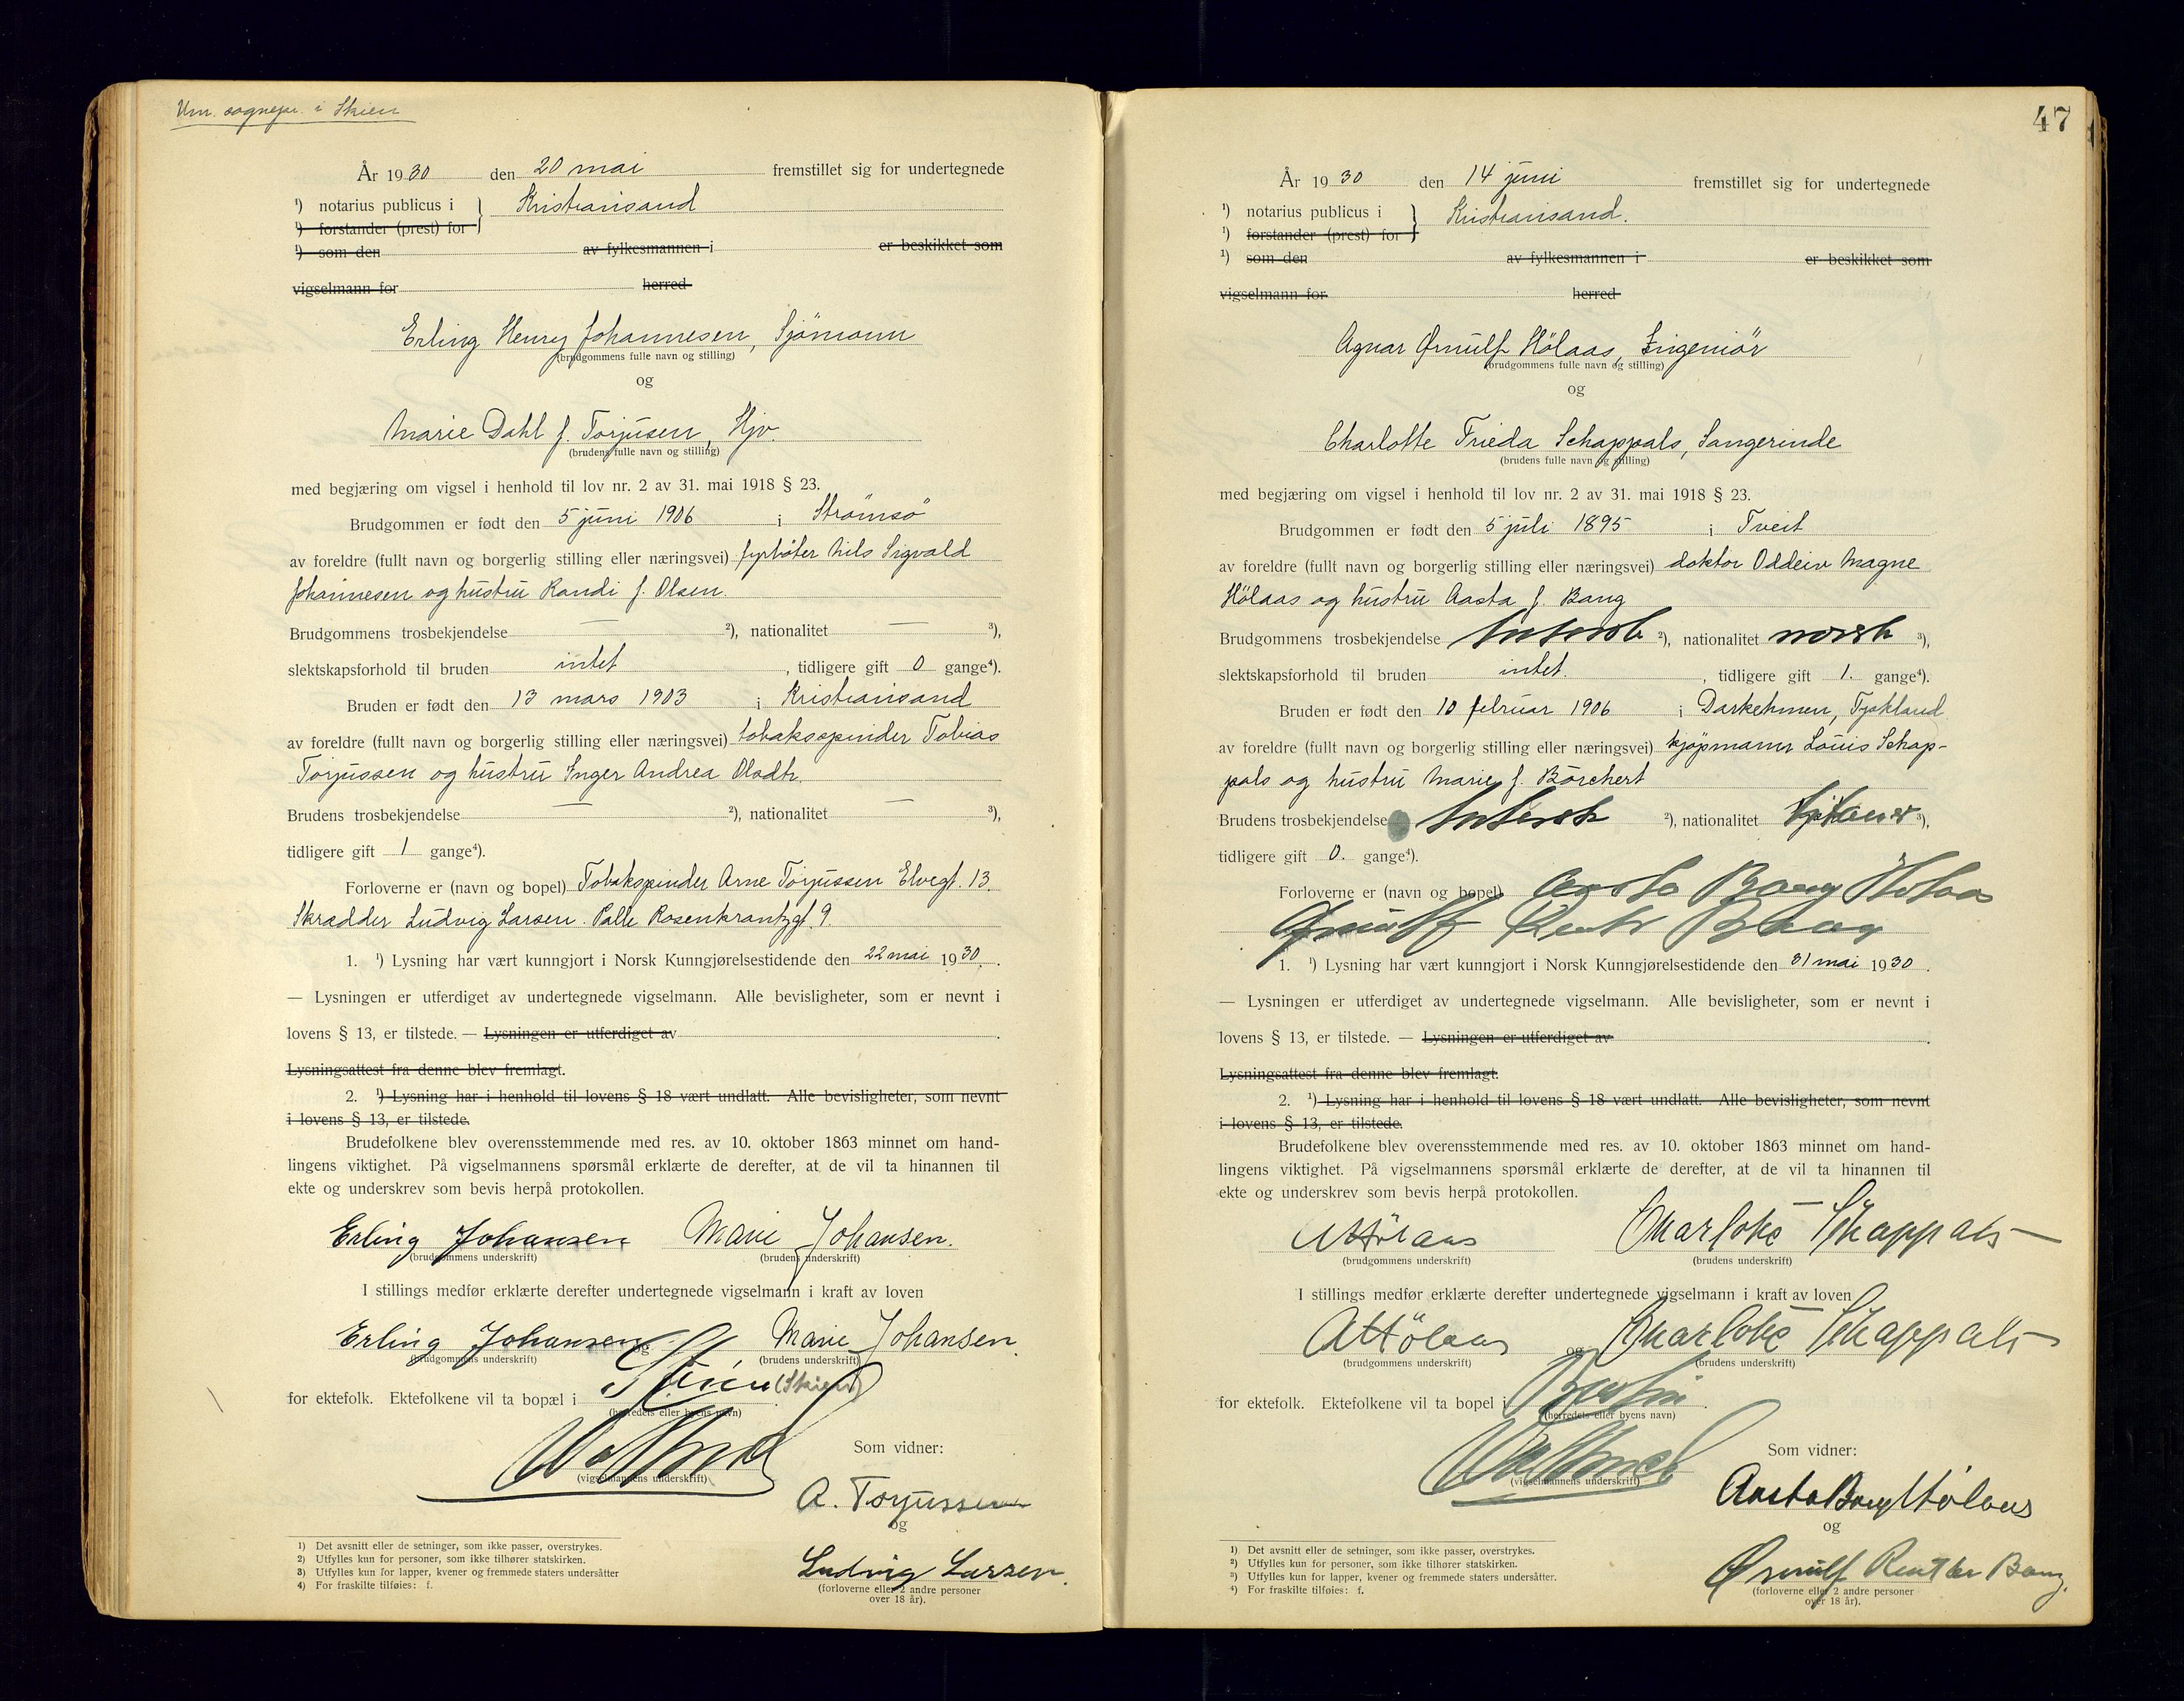 Um. sognepr. i Skien
År 1930 den 20 mai fremstillet sig for undertegnede
¹) notarius publicus i } Kristiansand
¹) forstander (prest) for
¹) som den av fylkesmannen i er beskikket som
vigselmann for herred
Erling Henry Johannesen, Sjömann
(brudgommens fulle navn og stilling)
og
Marie Dahl f. Torjusen, Hjv.
(brudens fulle navn og stilling)
med begjæring om vigsel i henhold til lov nr. 2 av 31. mai 1918 § 23.
Brudgommen er født den 5 juni 1906 i Strömsö
av foreldre (fullt navn og borgerlig stilling eller næringsvei) fyrböter Nils Sigvald
Johannesen og hustru Randi f. Olsen.
Brudgommens trosbekjendelse — ²), nationalitet — ³),
slektskapsforhold til bruden intet, tidligere gift 0 gange⁴).
Bruden er født den 13 mars 1903 i Kristiansand
av foreldre (fullt navn og borgerlig stilling eller næringsvei) tobakspinder Tobias
Torjussen og hustru Inger Andrea
Brudens trosbekjendelse — ²), nationalitet — ³),
tidligere gift 1 gange⁴).
Forloverne er (navn og bopel) Tobakspinder Arne Torjussen Elvegt. 13.
Skrædder Ludvig Larsen. Palle Rosenkrantzgt. 9.
1. ¹) Lysning har vært kunngjort i Norsk Kunngjørelsestidende den 22 mai 1930.
— Lysningen er utferdiget av undertegnede vigselmann. Alle bevisligheter, som er nevnt i
lovens § 13, er tilstede. — Lysningen er utferdiget av .
Lysningsattest fra denne blev fremlagt.
2. ¹) Lysning har i henhold til lovens § 18 vært undlatt. Alle bevisligheter, som nevnt
i lovens § 13, er tilstede.
Brudefolkene blev overensstemmende med res. av 10. oktober 1863 minnet om hand-
lingens viktighet. På vigselmannens spørsmål erklærte de derefter, at de vil ta hinannen til
ekte og underskrev som bevis herpå protokollen.
Erling Johansen Marie Johansen.
(brudgommens underskrift) (brudens underskrift)
I stillings medfør erklærte derefter undertegnede vigselmann i kraft av loven
Erling Johansen og Marie Johansen.
(brudgommens underskrift) (brudens underskrift)
for ektefolk. Ektefolkene vil ta bopæl i Skien (Skien)
(herredets eller byens navn)
(vigselmannens underskrift)
Som vidner:
A. Torjussen
og
Ludvig Larsen.
(forloverne eller 2 andre personer
over 18 år).
1) Det avsnitt eller de setninger, som ikke passer, overstrykes.
2) Utfylles kun for personer, som ikke tilhører statskirken.
3) Utfylles kun for lapper, kvener og fremmede staters undersåtter
4) For fraskilte tilføies: f.
47
År 1930 den 14 juni fremstillet sig for undertegnede
¹) notarius publicus i } Kristiansand.
¹) forstander (prest) for
¹) som den av fylkesmannen i er beskikket som
vigselmann for herred
Agnar Ørnulf Hölaas, Ingeniör
(brudgommens fulle navn og stilling)
og
Charlotte Frieda Schappals, Sangerinde
(brudens fulle navn og stilling)
med begjæring om vigsel i henhold til lov nr. 2 av 31. mai 1918 § 23.
Brudgommen er født den 5 juli 1895 i Tveit
av foreldre (fullt navn og borgerlig stilling eller næringsvei) doktor Oddeiv Magne
Hölaas og hustru Aasta f. Bang
Brudgommens trosbekjendelse luthersk ²), nationalitet norsk ³),
slektskapsforhold til bruden intet., tidligere gift 1. gange⁴).
Bruden er født den 10 februar 1906 i Darkehmen, Tyskland
av foreldre (fullt navn og borgerlig stilling eller næringsvei) kjöpmann Louis Schap-
pals og hustru Marie f. Borchert
Brudens trosbekjendelse luthersk ²), nationalitet ³),
tidligere gift 0. gange⁴).
Forloverne er (navn og bopel) Aasta Bang Hölaas
Ørnulf Bang
1. ¹) Lysning har vært kunngjort i Norsk Kunngjørelsestidende den 31 mai 1930.
— Lysningen er utferdiget av undertegnede vigselmann. Alle bevisligheter, som er nevnt i
lovens § 13, er tilstede. — Lysningen er utferdiget av .
Lysningsattest fra denne blev fremlagt.
2. ¹) Lysning har i henhold til lovens § 18 vært undlatt. Alle bevisligheter, som nevnt
i lovens § 13, er tilstede.
Brudefolkene blev overensstemmende med res. av 10. oktober 1863 minnet om hand-
lingens viktighet. På vigselmannens spørsmål erklærte de derefter, at de vil ta hinannen til
ekte og underskrev som bevis herpå protokollen.
A Hölaas Charlotte Schappals
(brudgommens underskrift) (brudens underskrift)
I stillings medfør erklærte derefter undertegnede vigselmann i kraft av loven
A Hölaas og Charlotte Schappals
(brudgommens underskrift) (brudens underskrift)
for ektefolk. Ektefolkene vil ta bopel i Berlin.
(herredets eller byens navn)
(vigselmannens underskrift)
Som vidner:
Aasta Bang Hölaas
og
Ørnulf Bang.
(forloverne eller 2 andre personer
over 18 år).
1) Det avsnitt eller de setninger, som ikke passer, overstrykes.
2) Utfylles kun for personer, som ikke tilhører statskirken.
3) Utfylles kun for lapper, kvener og fremmede staters undersåtter.
4) For fraskilte tilføies: f.